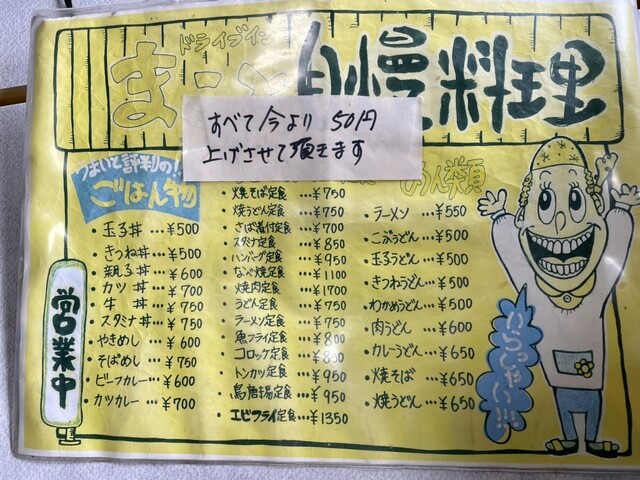 ドライブイン
まこと 自慢料理
すべて今より 50円
上げさせて頂きます
うまいと評判の!!
ごはん物
・玉子丼…¥500
・きつね丼…¥500
・親子丼…¥600
・カツ丼…¥700
・牛丼…¥750
・スタミナ丼…¥750
・やきめし…¥600
・そばめし…¥750
・ビーフカレー…¥600
・カツカレー…¥700
営業中
・焼そば定食…¥750
・焼うどん定食…¥750
・さば煮付定食…¥700
・スタミナ定食…¥850
・ハンバーグ定食…¥950
・なべ焼定食…¥1100
・焼肉定食…¥1700
・うどん定食…¥750
・ラーメン定食…¥750
・魚フライ定食…¥800
・コロッケ定食…¥800
・トンカツ定食…¥950
・鳥唐揚定食…¥950
・エビフライ定食…¥1350
めん類
・ラーメン…¥550
・こぶうどん…¥500
・玉子うどん…¥500
・きつねうどん…¥500
・わかめうどん…¥500
・肉うどん…¥600
・カレーうどん…¥650
・焼そば…¥650
・焼うどん…¥650
いらっしゃい!!!